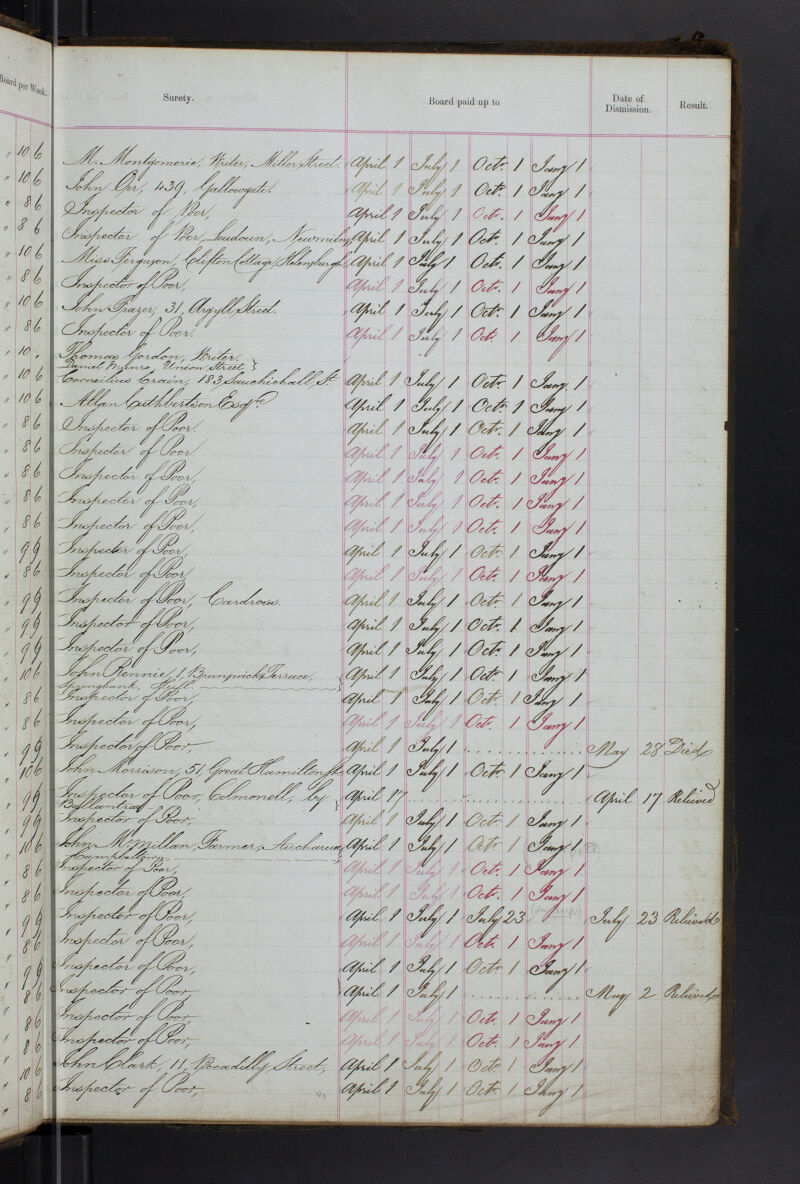 Board per Week.
Surety.
Board paid up to
Date of Dismission.
Result.
" 10 6 M. Montgomerie, Writer, Miller Street. April 1 July 1 Oct. 1 Jany 1
" 10 6 John Orr, 439, Gallowgate. April 1 July 1 Oct. 1 Jany 1
" 8 6 Inspector of Poor, April 1 July 1 Oct. 1 Jany 1
" 8 6 Inspector of Poor, Loudoun, Newmilns April 1 July 1 Oct. 1 Jany 1
" 10 6 Miss Ferguson, Clifton Cottage, Helensburgh April 1 July 1 Oct. 1 Jany 1
" 8 6 Inspector of Poor, April 1 July 1 Oct. 1 Jany 1
" 10 6 John Frazer, 31, Argyll Street. April 1 July 1 Oct. 1 Jany 1
" 8 6 Inspector of Poor. April 1 July 1 Oct. 1 Jany 1
" 10 " Thomas Gordon, Writer.
Daniel Munro, Union Street
" 10 6 Cornelius Crain, 183 Sauchichall St April 1 July 1 Oct. 1 Jany 1
" 10 6 Allan Cuthbertson Esqre. April 1 July 1 Oct. 1 Jany 1
" 8 6 Inspector of Poor. April 1 July 1 Oct. 1 Jany 1
" 8 6 Inspector of Poor April 1 July 1 Oct. 1 Jany 1
" 8 6 Inspector of Poor, April 1 July 1 Oct. 1 Jany 1
" 8 6 Inspector of Poor, April 1 July 1 Oct. 1 Jany 1
" 8 6 Inspector of Poor, April 1 July 1 Oct. 1 Jany 1
" 9 9 Inspector of Poor, April 1 July 1 Oct. 1 Jany 1
" 8 6 Inspector of Poor April 1 July 1 Oct. 1 Jany 1
" 9 9 Inspector of Poor, Cardross. April 1 July 1 Oct. 1 Jany 1
" 9 9 Inspector of Poor, April 1 July 1 Oct. 1 Jany 1
" 9 9 Inspector of Poor, April 1 July 1 Oct. 1 Jany 1
" 10 6 John Rennie, 1, Brunswick Terrace, April 1 July 1 Oct. 1 Jany 1
Springbank, Hull.
" 8 6 Inspector of Poor, April 1 July 1 Oct. 1 Jany 1
" 8 6 Inspector of Poor, April 1 July 1 Oct. 1 Jany 1
" 9 9 Inspector of Poor, April 1 July 1 May 28 Died
" 10 6 John Morrison, 51, Great Hamilton St. April 1 July 1 Oct. 1 Jany 1
" 9 9 Inspector of Poor, Colmonell, by April 17 April 17 Relieved
Ballantrae
" 9 9 Inspector of Poor, April 1 July 1 Oct. 1 Jany 1
" 10 6 John McMillan, Farmer, April 1 July 1 Oct. 1 Jany 1
Campbeltown.
" 8 6 Inspector of Poor, April 1 July 1 Oct. 1 Jany 1
" 8 6 Inspector of Poor, April 1 July 1 Oct. 1 Jany 1
" 9 9 Inspector of Poor, April 1 July 1 July 23 July 23 Relieved
" 8 6 Inspector of Poor, April 1 July 1 Oct. 1 Jany 1
" 9 9 Inspector of Poor, April 1 July 1 Oct. 1 Jany 1
" 8 6 Inspector of Poor April 1 July 1 May 2 Relieved
" 8 6 Inspector of Poor April 1 July 1 Oct. 1 Jany 1
" 8 6 Inspector of Poor, April 1 July 1 Oct. 1 Jany 1
" 10 6 John Clark, 11, Piccadilly Street, April 1 July 1 Oct. 1 Jany 1
" 8 6 Inspector of Poor, April 1 July 1 Oct. 1 Jany 1